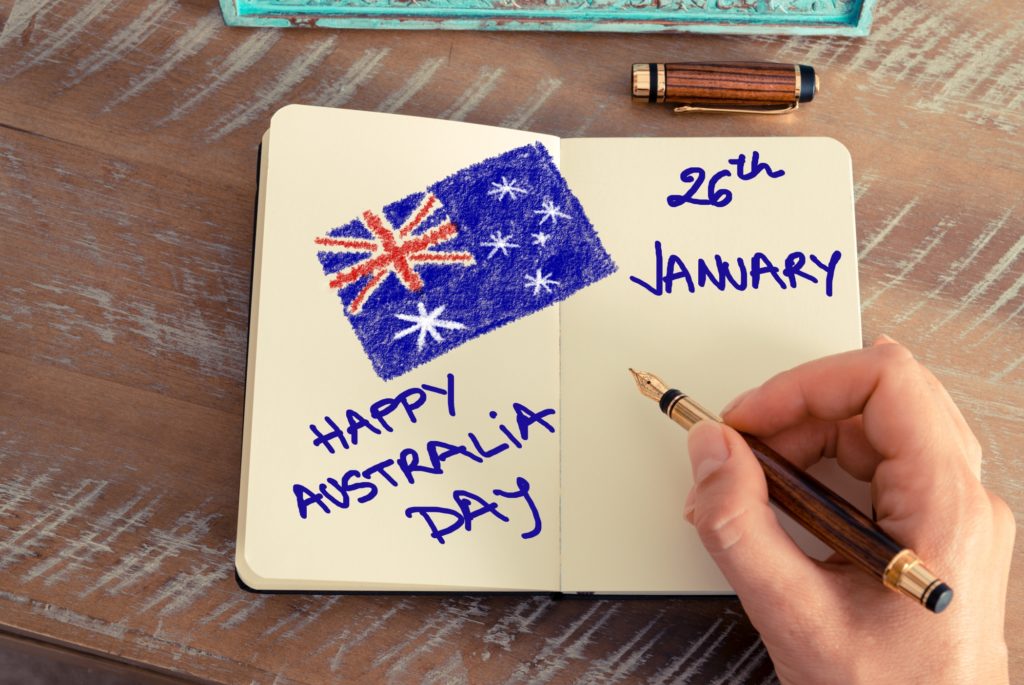 HAPPY
AUSTRALIA
DAY
26th
JANUARY